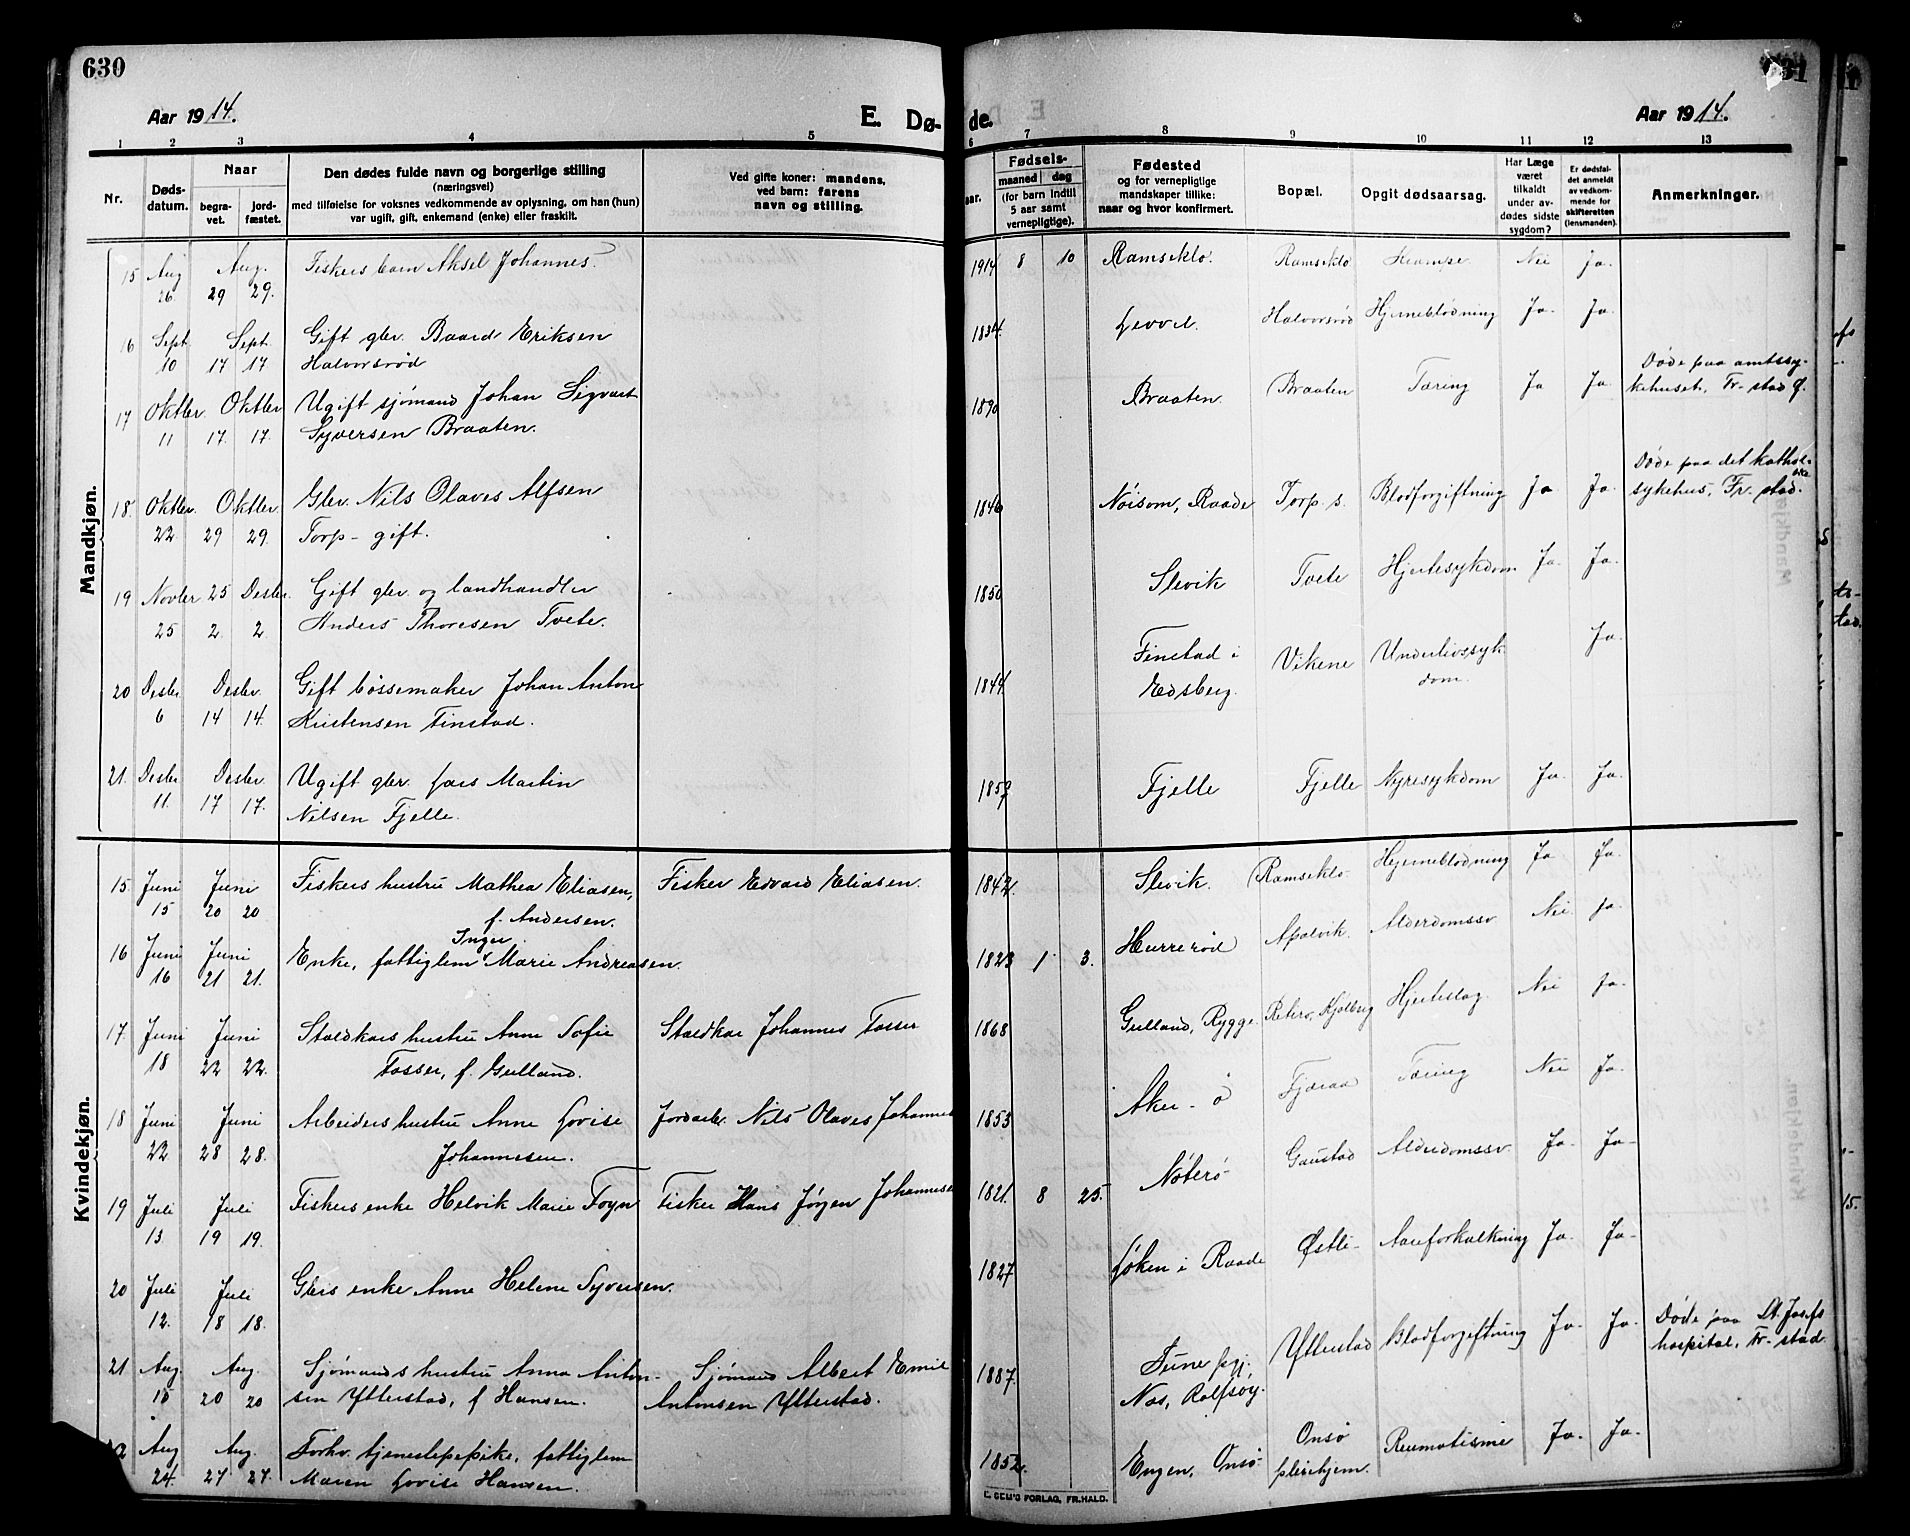 630
631
Aar 1914.
E. Dø-
de.
Aar 1914.
1 2 3 4 5 6 7 8 9 10 11 12 13
Nr.
Døds-
datum.
Naar
begra-
vet.
jord-
fæstet.
Den dødes fulde navn og borgerlige stilling
(næringsvei)
med tilføielse for voksnes vedkommende av oplysning, om han (hun)
var ugift, gift, enkemand (enke) eller fraskilt.
Ved gifte koner: mandens,
ved barn: farens
navn og stilling.
aar.
Fødsels-
maaned dag
(for barn indtil
5 aar samt
vernepligtige).
Fødested
og for vernepligtige
mandskaper tillike:
naar og hvor konfirmert.
Bopæl.
Opgit dødsaarsag.
Har Læge
været
tilkaldt
under av-
dødes sidste
sygdom?
Er dødsfal-
det anmeldt
av vedkom-
mende for
skifteretten
(lensmanden).
Anmerkninger.
Mandkjøn.
15 Aug Aug. Fiskers barn Aksel Johannes. 1914 8 10 Ramseklo. Ramseklo Krampe Nei Ja.
26. 29 29.
16 Sept Sept. Gift gbr. Baard Eriksen 1834. Levvel. Halvorsrød Hjerneblødning Ja. Ja.
10 17 17 Halvorsrød
17 Oktbr. Oktbr Ugift sjømand Johan Sigvart 1890 Braaten. Braaten Tæring Ja Ja. Døde paa amtssy-
11 17. 17. Syversen Braaten. kehuset, Fr-stad
18. Oktbr. Oktbr. Gbr. Nils Olaves Alfsen 1846 Nöisom, Raade Torp s. Blodforgiftning Ja Ja. Døde paa det kathol-
ske
22 29 29. Torp - gift. sykehus, Fr-stad.
19 Novbr 25 Desbr. Gift gbr og landhandler 1850 Slevik Tvete Hjertesykdom Ja. Ja.
25 2 2. Anders Thoresen Tvete.
20 Desbr. Desbr. Gift bøssemaker Johan Anton 1844. Finstad i Vikene Underlivssyk Ja.
6 14 14. Kristensen Finstad. Edsberg. dom.
21. Desbr Desbr. Ugift gbr. Lars Martin 1859 Fjelle Fjelle Nyresykdom Ja. Ja.
11. 17 17. Nilsen Fjelle.
Kvindekjøn.
15 Juni Juni Fiskers hustru Mathea Eliasen, Fisker Edvard Eliasen. 1842. Slevik. Ramseklo Hjerneblødning Ja Ja.
15 20 20 f. Andersen.
Inger
16 Juni Juni Enke, fattiglem Marie Andreasen. 1823 1 3. Hurrerød Apalvik. Alderdomssv Nei Ja.
16 21 21.
17. Juni Juni Staldkars hustru Anne Sofie Staldkar Johannes Tosser 1868 Gulland, Rygge Retiro, Kjølberg Hjerteslag. Nei Ja.
18 22 22. Tosser, f. Gulland.
18 Juni Juni Arbeiders hustru Anne Lovise Jordarb. Nils Olaves Johannes 1853 Aker-ø Fjæraa Tæring Nei Ja.
22 28 28. Johannesen.
19 Juli Juli Fiskers enke Helvik Marie Foyn Fisker Hans Jørgen Johannesen 1821. 8 25. Nøterø Gaustad Alderdomssv Ja Ja
13. 19 19.
20 Juli Juli Gbrs enke Anne Helene Syversen. 1827 Løken i Raade Østli Aareforkalkning Ja. Ja
12. 18 18.
21 Aug Aug. Sjømands hustru Anna Anton- Sjømand Albert Emil 1887. Tune pgj. Ytterstad Blodforgiftning Ja. Ja. Døde paa St. Josefs
15 20 20 sen Ytterstad, f Hansen. Antonsen Ytterstad. Nes, Rolfsøy. hospital, Fr-stad
22 Aug Aug. Forhv. tjenestepepike, fattiglem 1852. Engen, Onsø Onsø Reumatisme Ja. Ja.
24. 27 27. Maren Lovise Hansen. pleiehjem.
E. SEM'S FORLAG, FR.HALD.